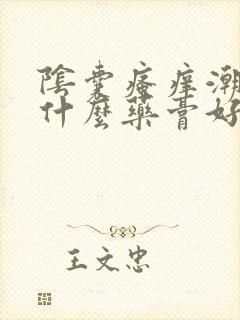 陰囊瘙癢潮
什麼藥膏好
王文忠